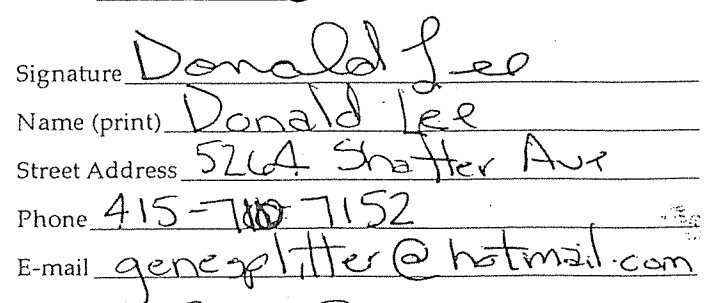 Signature Donald Lee
Name (print) Donald Lee
Street Address 5264 Shafter Ave
Phone 415-710 7152
E-mail genesplitter@hotmail.com